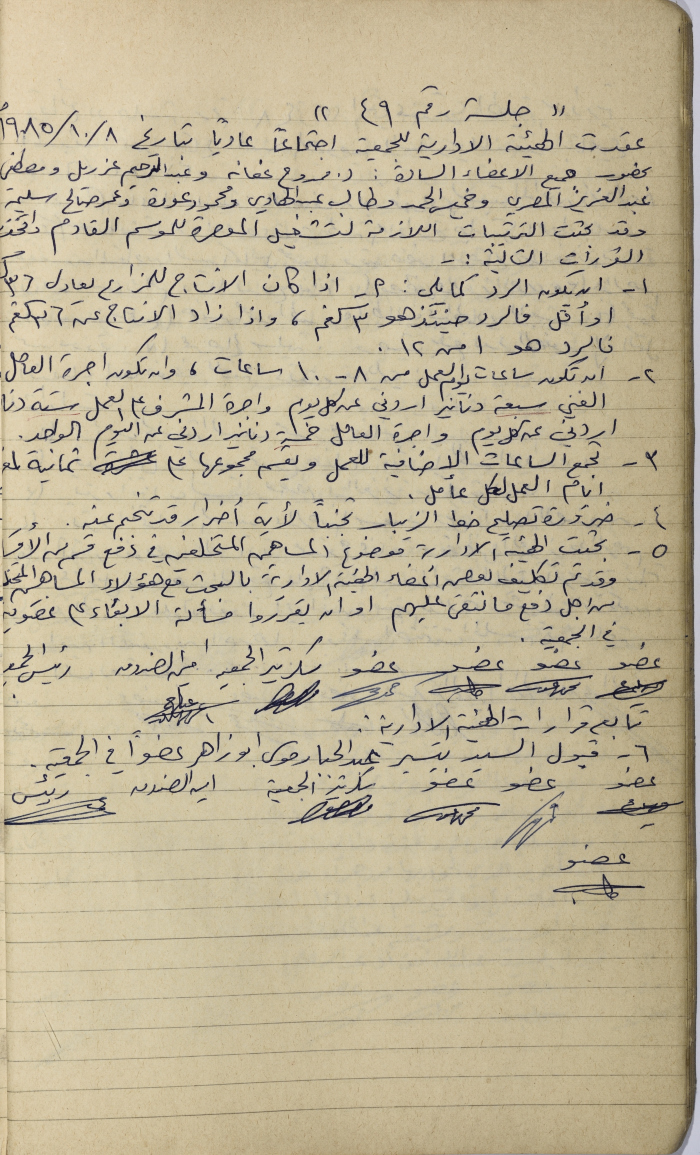 « جلسة رقم ٤٩ »
عقدت الهيئة الادارية للجمعية اجتماعاً عادياً بتاريخ ٨/١٠/١٩٨٥
بحضور جميع الاعضاء السادة : د. ممدوح عفانه وعبد الرحيم غزيل ومصطفى
عبد العزيز المصري وخضر الحمد وطالب عبد الهادي ومحمود عودة وعمر صالح سليمة
وقد بحثت الترتيبات اللازمة لتشغيل المعصرة للموسم القادم واتخذت
القرارات التالية : -
١ - ان يكون الرد كما يلي : ٢ - اذا كان الانتاج للمزارع يعادل ٣٦
او أقل فالرد حينئذ هو ٣ كغم ، واذا زاد الانتاج عن ٣٦ كغم
فالرد هو ١ من ١٢ .
٢ - ان تكون ساعات يوم العمل من ٨ - ١٠ ساعات ، وان تكون اجرة العامل
الفني سبعة دنانير اردني عن كل يوم واجرة المشرف على العمل ستة
اردني عن كل يوم واجرة العامل خمسة دنانير اردني عن اليوم الواحد .
٣ - تجمع الساعات الاضافية للعمل ويقسم مجموعها على ثمانية
ايام العمل لكل عامل .
٤ - ضرورة تصليح خط الزيبار تجنباً لأية أضرار قد تنجم عنه .
٥ - بحثت الهيئة الادارية موضوع المساهمين المتخلفين في دفع قسم من
وقد تم تكليف بعض اعضاء الهيئة الادارية بالبحث مع هؤلاء المساهمين
من اجل دفع ما تبقى عليهم او ان يقرروا مسألة الابقاء على عضويتهم
في الجمعية .
عضو عضو عضو عضو سكرتير الجمعيه امين الصندوق رئيس الجمعية
تابع قرارات الهيئة الادارية :
٦ - قبول السيد تيسير عبد الجبار موسى ابو زاهر عضواً في الجمعية .
عضو عضو عضو سكرتير الجمعية امين الصندوق رئيس
عضو